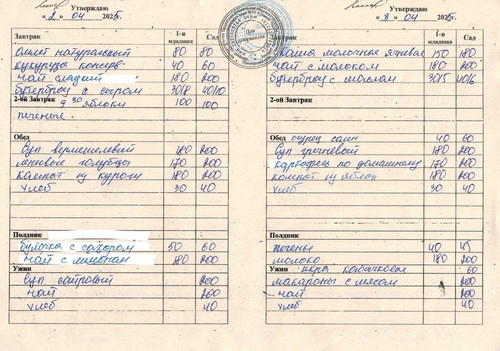 Утверждаю
« 2 » 04 2025г
Завтрак 1-я младшая Сад
Омлет натуральный 80 80
кукуруза консерв. 40 60
чай сладкий 180 200
бутерброд с сыром 30/8 40/10
2-ой Завтрак 9 30 яблоки 100 100
печенье
Обед
Суп вермишелевый 180 200
ленивые голубцы 170 200
компот из кураги 180 200
хлеб 30 40
Полдник
булочка с сахаром 50 60
чай с лимоном 180 200
Ужин
суп затровый 200
чай 200
хлеб 40
Утверждаю
« 3 » 04 2025г
Завтрак 1-я младшая Сад
Каша молочная ячневая 150 180
чай с молоком 180 200
бутерброд с маслом 30/5 40/6
2-ой Завтрак
Обед огурец солн 40 60
Суп гречневый 180 200
картофель по домашнему 170 200
компот из яблок 180 200
хлеб 30 40
Полдник
печенье 40 45
молоко 180 200
Ужин икра кабачковая 60
макароны с мясом 200
чай 200
хлеб 40